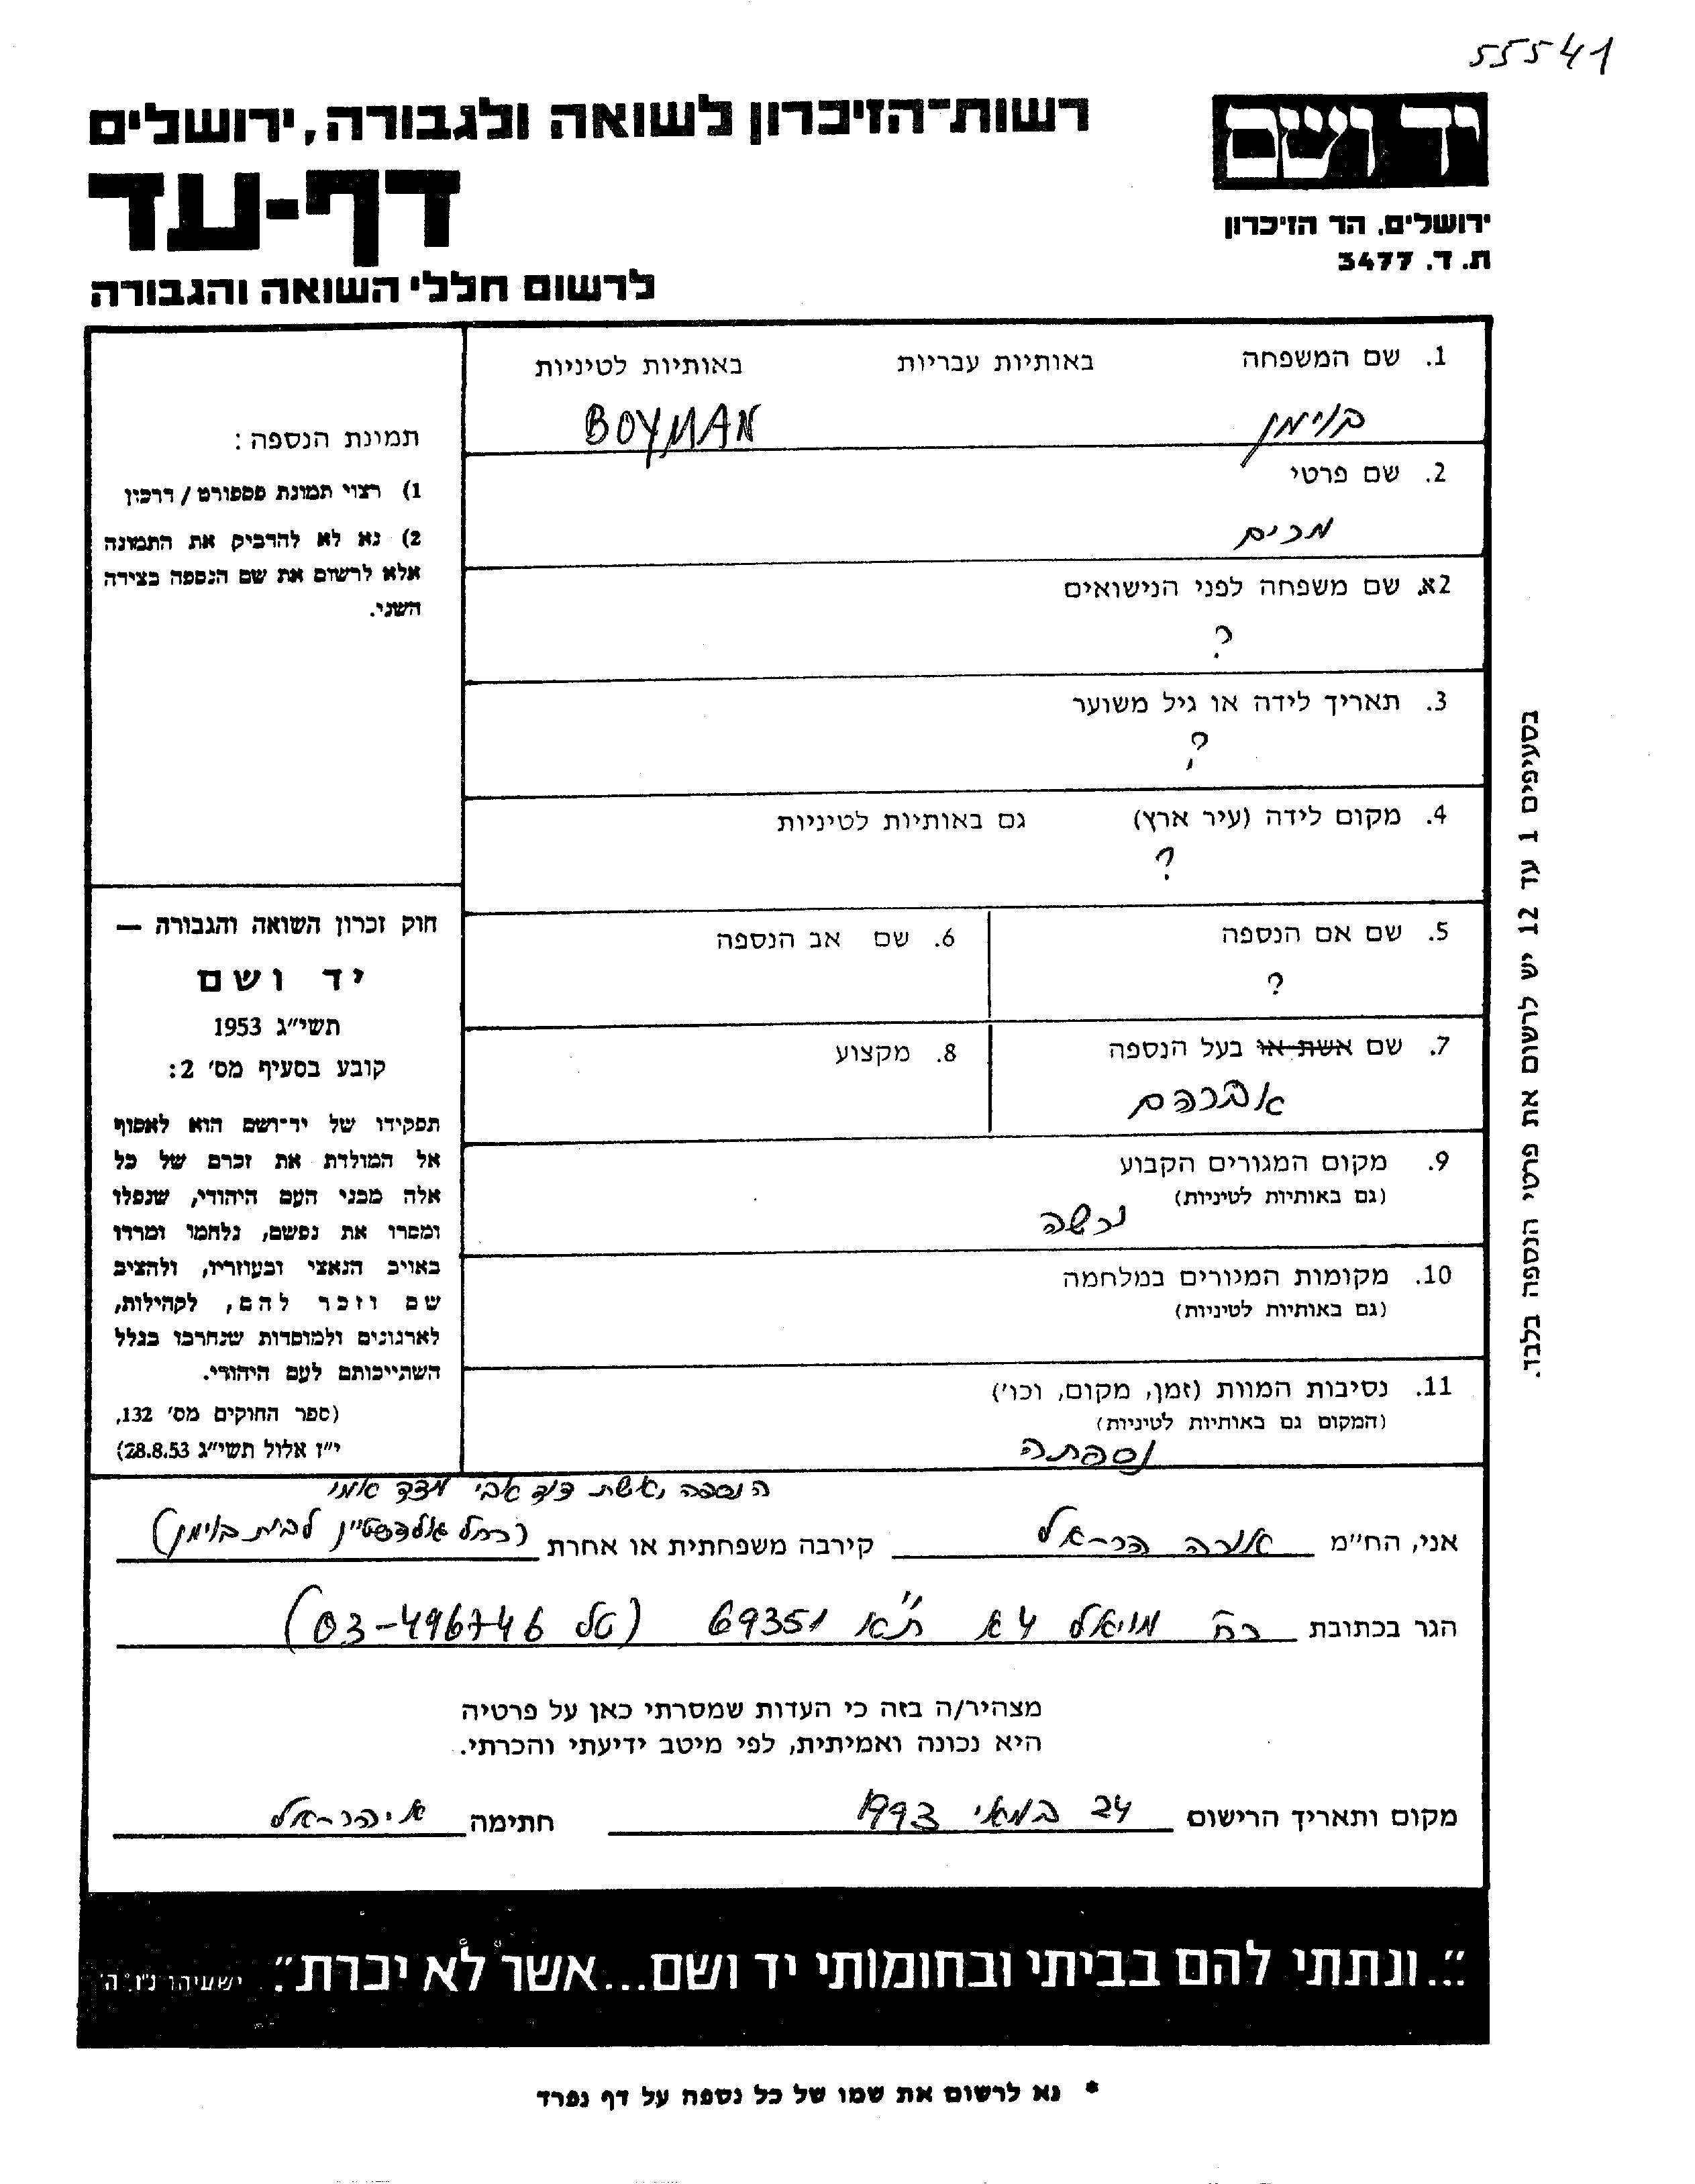 55541
יד ושם
ירושלים, הר הזיכרון
ת. ד. 3477
רשות־הזיכרון לשואה ולגבורה, ירושלים
דף-עד
לרשום חללי השואה והגבורה
1. שם המשפחה באותיות עבריות באותיות לטיניות
בוימן BOYMAN
2. שם פרטי
מרים
2א. שם משפחה לפני הנישואים
?
3. תאריך לידה או גיל משוער
?
4. מקום לידה (עיר ארץ) גם באותיות לטיניות
?
5. שם אם הנספה 6. שם אב הנספה
?
7. שם אשת או בעל הנספה 8. מקצוע
אברהם
9. מקום המגורים הקבוע
(גם באותיות לטיניות)
ורשה
10. מקומות המגורים במלחמה
(גם באותיות לטיניות)
11. נסיבות המוות (זמן, מקום, וכו')
(המקום גם באותיות לטיניות)
נספתה
תמונת הנספה:
1) רצוי תמונת פספורט / דרכון
2) נא לא להדביק את התמונה
אלא לרשום את שם הנספה בצידה
השני.
חוק זכרון השואה והגבורה —
יד ושם
תשי"ג 1953
קובע בסעיף מס' 2:
תפקידו של יד־ושם הוא לאסוף
אל המולדת את זכרם של כל
אלה מבני העם היהודי, שנפלו
ומסרו את נפשם, נלחמו ומרדו
באויב הנאצי ובעוזריו, ולהציב
שם וזכר להם, לקהילות,
לארגונים ולמוסדות שנחרבו בגלל
השתייכותם לעם היהודי.
(ספר החוקים מס' 132,
י"ז אלול תשי"ג 28.8.53)
בסעיפים 1 עד 12 יש לרשום את פרטי הנספה בלבד.
הנספה אשת דוד אבי מצד אמי
אני, הח"מ הר-אל קירבה משפחתית או אחרת (רחל גולדשטיין לבית בוימן)
הגר בכתובת רח' 4א ת"א 69351 (טל 03-496746)
מצהיר/ה בזה כי העדות שמסרתי כאן על פרטיה
היא נכונה ואמיתית, לפי מיטב ידיעתי והכרתי.
מקום ותאריך הרישום 24 במאי 1993 חתימה א. הר-אל
"...ונתתי להם בביתי ובחומותי יד ושם...אשר לא יכרת". ישעיהו נ"ו, ה'
* נא לרשום את שמו של כל נספה על דף נפרד